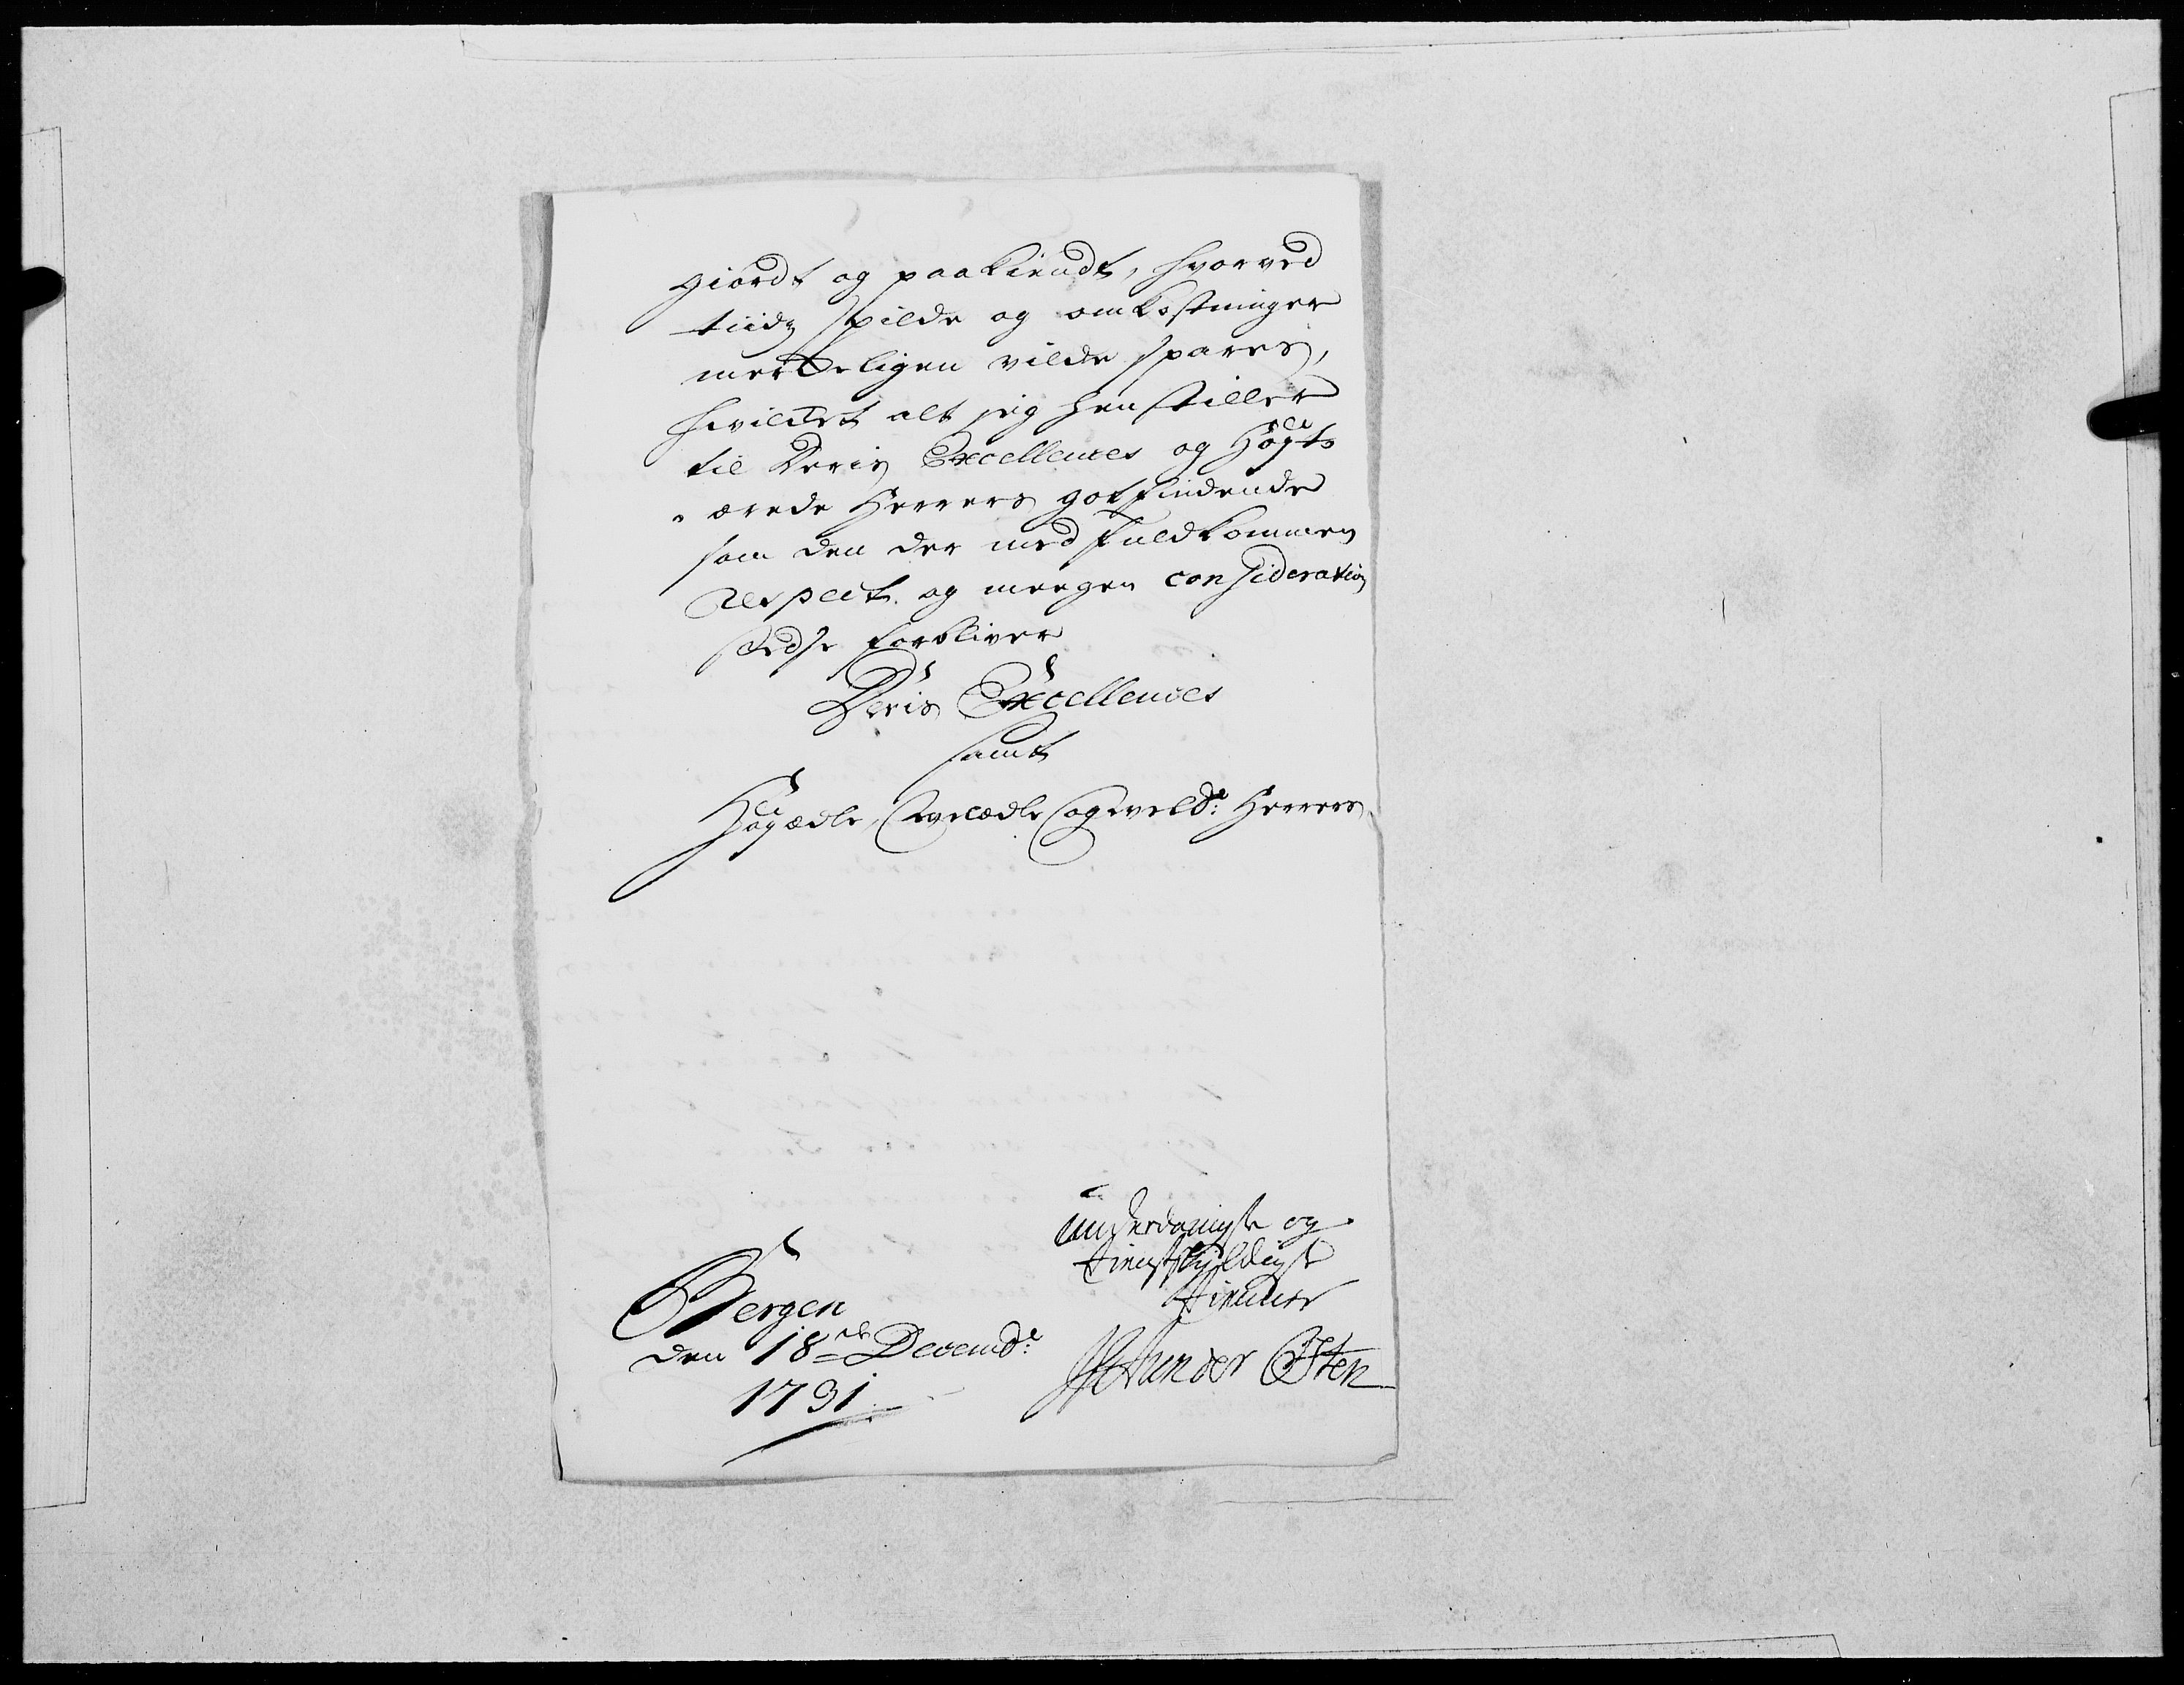 giordt og paakiendt, hvorved
tiids spilde og omkostninger
merkeligen vilde spares,
hvilket alt jeg henstiller
til Deris Excellences og Høyt-
ærede Herrers gotfindende
som den der med fuldkommen
respect og meegen consideration
stedse forbliver
Deris Excellences
samt
Høyædle, Velædle og velbe: Herrers
underdanigste og
tienstskyldigste
tienner
von der Osten
Bergen
den 18de Decembe:
1731